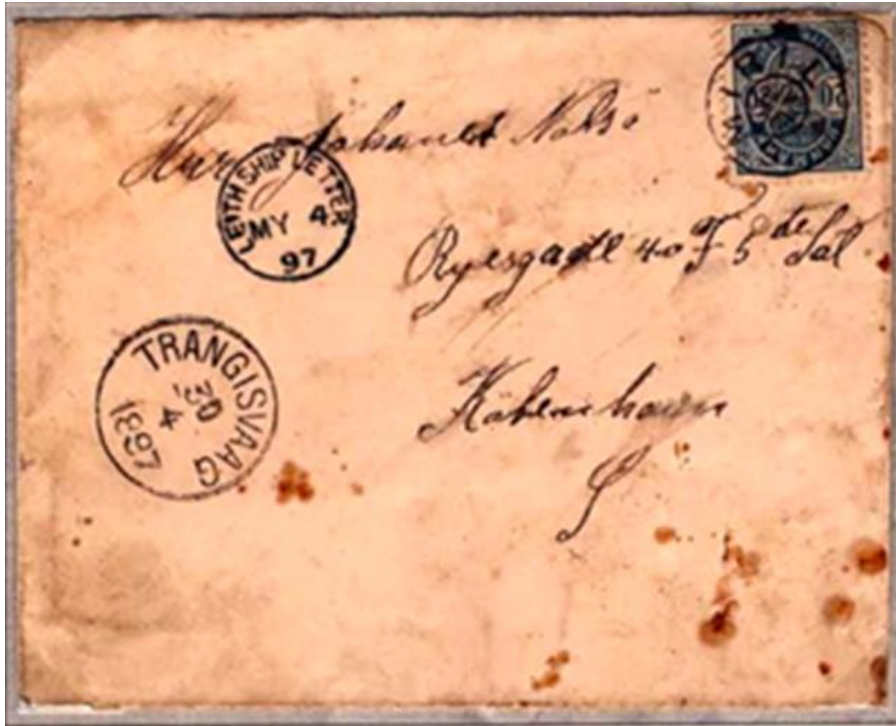 Herr Johanes Nolsö
LEITH SHIP LETTER
MY 4
97
Ryesgade 40 F 5 de Sal
TRANGISVAAG
30
4
1897
Köbenhavn
20